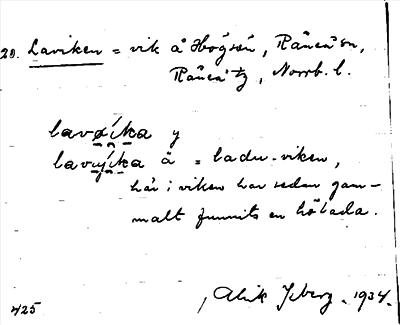 20. Laviken = vik å Högsön, Råneå sn,
Råneå tg, Norrb. l.
lavøíka y
lavụíka ä = ladu-viken,
här i viken har sedan gam-
malt funnits en hölada.
425
Alrik Isberg. 1934.